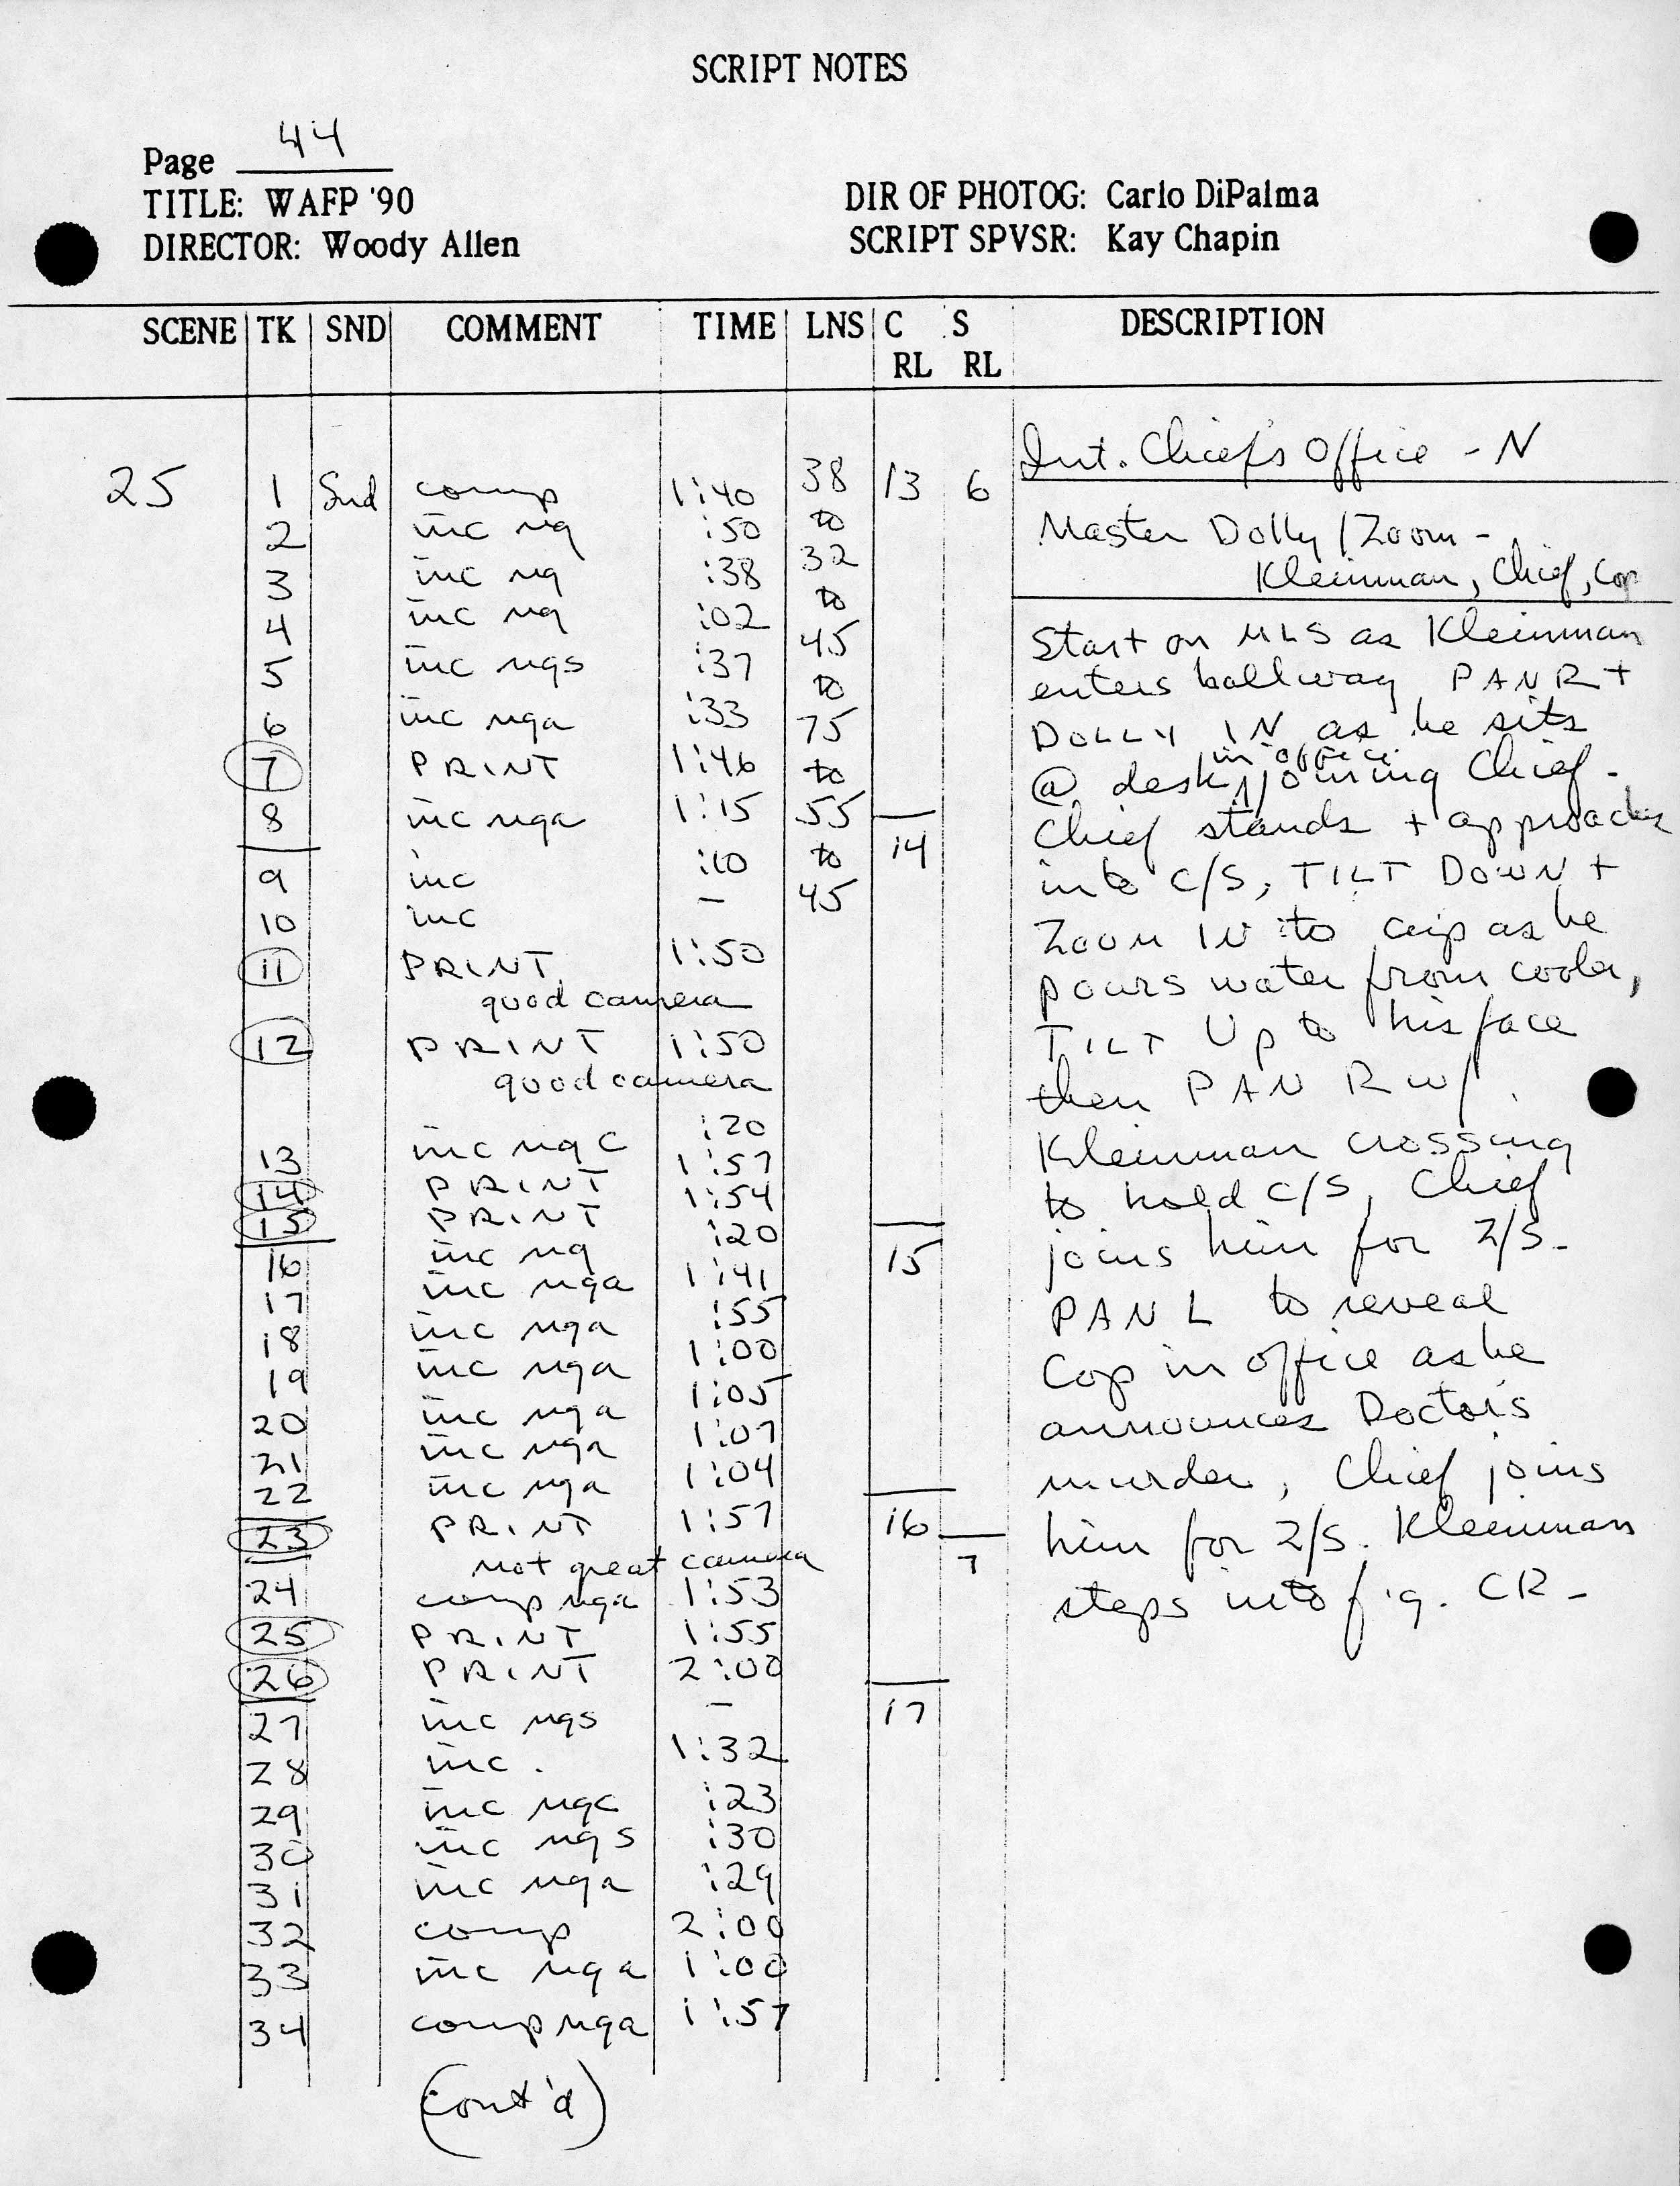 SCRIPT NOTES
Page 44
TITLE: WAFP '90
DIRECTOR: Woody Allen
DIR OF PHOTOG: Carlo DiPalma
SCRIPT SPVSR: Kay Chapin
SCENE TK SND COMMENT TIME LNS C RL S RL DESCRIPTION
25 1 Snd comp 1:40 38 13 6
2 inc ng :50 to
3 inc ng :38 32
4 inc ng :02 to
5 inc ngs :37 45
to
6 inc nga :33 75
7 PRINT 1:46 to
8 inc nga 1:15 55
9 inc :10 to 14
10 inc — 45
11 PRINT 1:50
good camera
12 PRINT 1:50
good camera
13 inc ng c :20
14 PRINT 1:57
15 PRINT 1:54
16 inc ng :20 15
17 inc nga 1:41
18 inc nga :55
19 inc nga 1:00
20 inc nga 1:05
21 inc nga 1:07
22 inc nga 1:04
23 PRINT 1:57 16
not great camera 7
24 comp nga 1:53
25 PRINT 1:55
26 PRINT 2:00
27 inc ngs — 17
28 inc. 1:32
29 inc ngc :23
30 inc ngs :30
31 inc nga :29
32 comp 2:00
33 inc nga 1:00
34 comp nga 1:57
(cont'd)
Int. Chief's Office - N
Master Dolly / Zoom -
Kleinman, Chief, Cop
Start on MLS as Kleinman
enters hallway PAN R +
DOLLY IN as he sits
@ desk in office joining Chief.
Chief stands + approaches
into C/S, TILT DOWN +
Zoom IN to cup as he
pours water from cooler,
TILT Up to his face
then PAN R w/
Kleinman crossing
to hold C/S, Chief
joins him for 2/S.
PAN L to reveal
Cop in office as he
announces Doctor's
murder, Chief joins
him for 2/S. Kleinman
steps into f.g. CR -